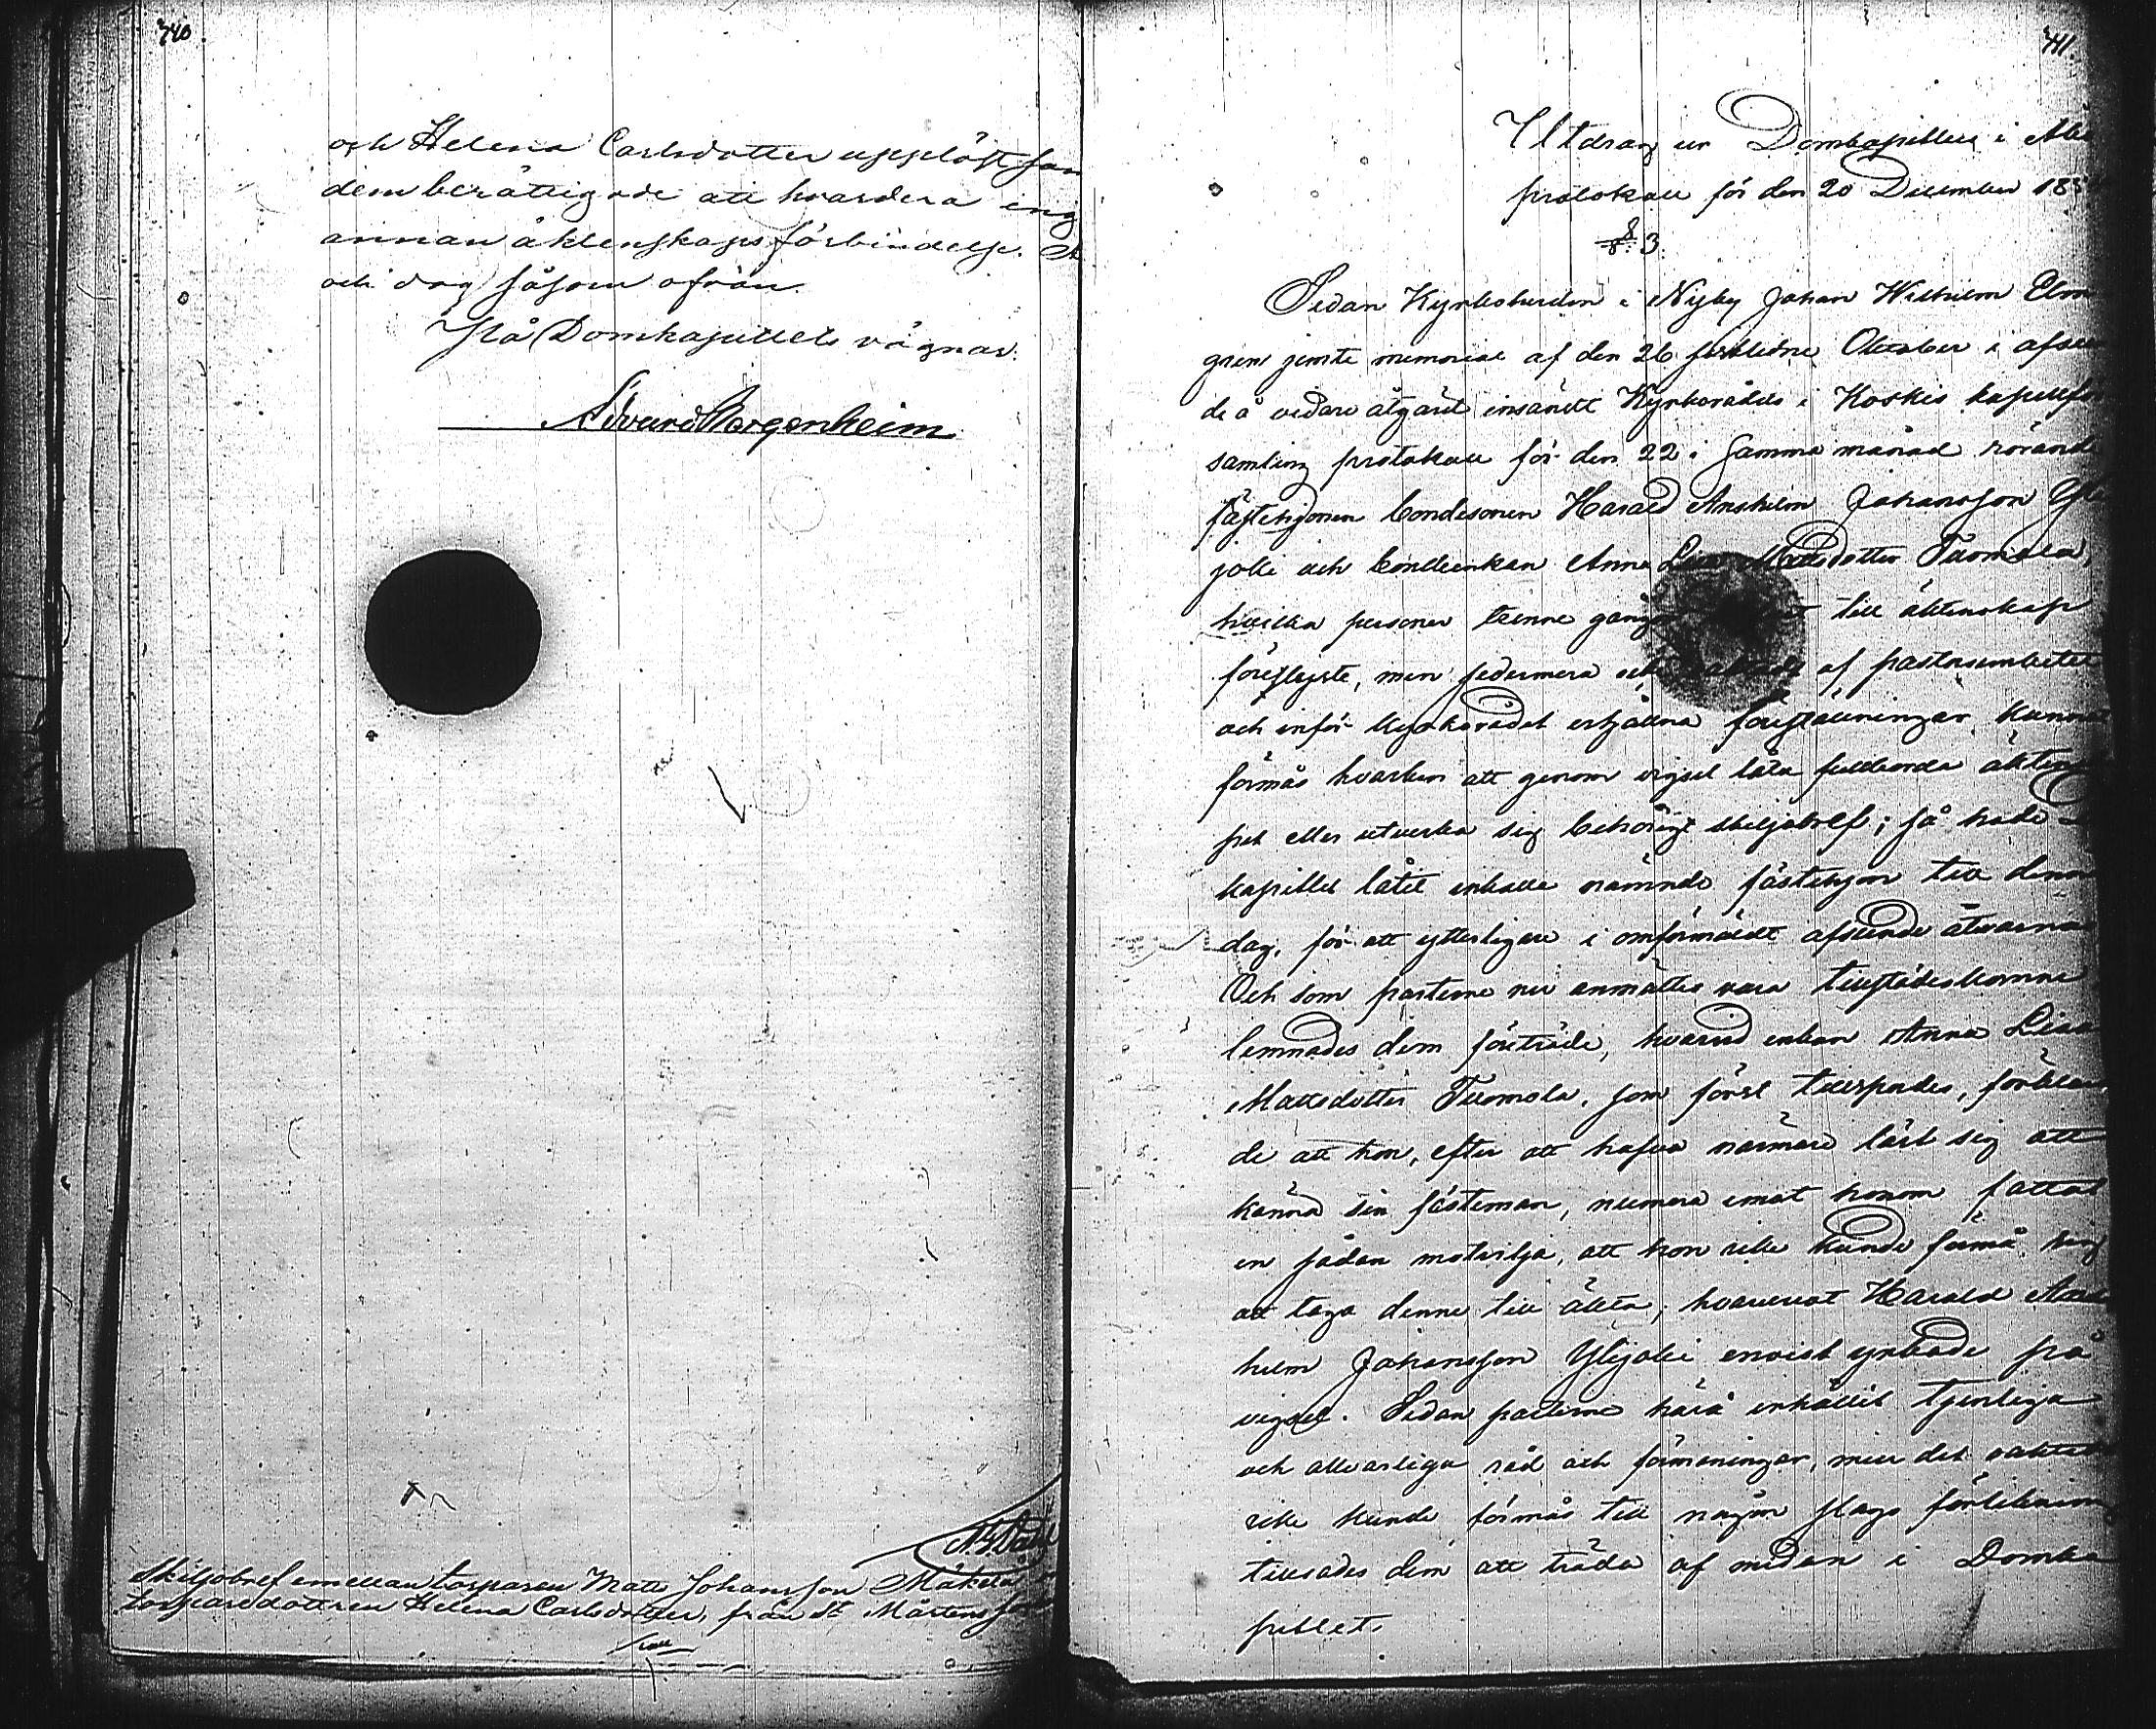 740.
och Helena Carlsdotter upplöst
dem berättigade att hvardera ing
annan äktenskapsförbindelse.
och dag såsom ofvan.
På Domkapitlets vägnar:
Edvard Bergenheim
Skiljobref emellan torparen Matts Johansson Mäkelä
torparedottren Helena Carlsdotter, från St Mårtens
711.
Utdrag ur Domkapitlets i Åbo
protokoll för den 20 December 18
§. 3.
Sedan Kyrkoherden i Nyby Johan Wilhelm Elm
gren jemte memorial af den 26 sistlidne Oktober i afseen
de å vidare åtgärd insändt Kyrkorådets i Koskis kapellför
samling protokoll för den 22 i samma månad rörande
fästehjonen bondesonen Harald Anshelm Johansson Yli
joki och bondeenkan Anna Lisa Mattsdotter Tuomola,
hvilka personer trenne gånger till äktenskap
förelyste, men sedermera icke af pastorsembetet
och inför kyrkorådet erhållna föreställningar kunnat
förmås hvarken att genom vigsel låta fullborda äktenska
pet eller utverka sig behörigt skiljobref; så hade
kapitlet låtit inkalla nämnde fästehjon till denna
dag, för att ytterligare i omförmäldt afseende åtvarnas
Och som parterne nu anmältes vara tillstädeskomne
lemnades dem företräde, hvarvid enkan Anna Lisa
Mattsdotter Tuomola, som först tillspordes, förklara
de att hon, efter att hafva närmare lärt sig att
känna sin fästeman, numera emot honom fattat
en sådan motvilja, att hon icke kunde förmå sig
att taga denne till äkta; hvaremot Harald Ans
helm Johansson Ylijoki envist yrkade på
vigsel. Sedan parterne härå erhållit tjenliga
och allvarliga råd och förmaningar, men det oaktadt
icke kunde förmås till någon slags förlikning
tillsades dem att träda af medan i Domka
pitlet